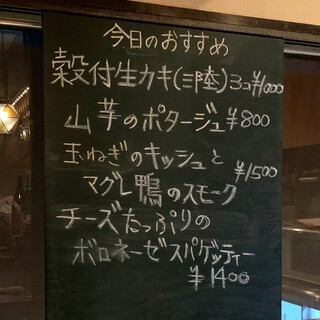 今日のおすすめ
殻付生カキ(三陸)3コ¥1000
山芋のポタージュ¥800
玉ねぎのキッシュと
マグレ鴨のスモーク ¥1500
チーズたっぷりの
ボロネーゼスパゲッティー
¥1400